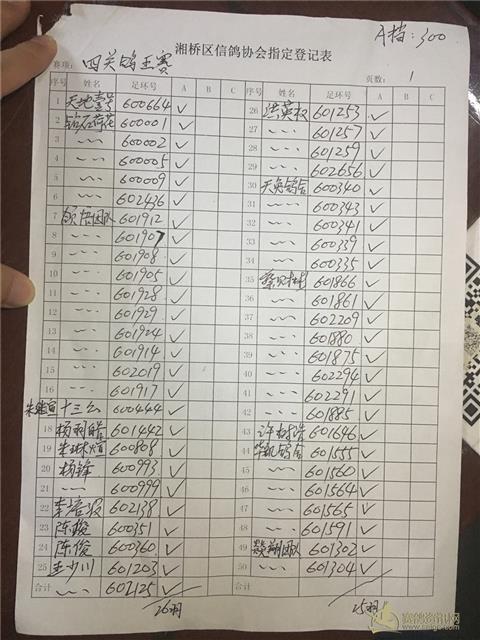 A档:300
湘桥区信鸽协会指定登记表
赛项: 四关鸽王赛 页数: 1
序号 姓名 足环号 A B C 序号 姓名 足环号 A B C
1 天地壹号 600664 ✓ 26 洪英权 601253 ✓
2 钻石荷花 600001 ✓ 27 ~~ 601257 ✓
3 ~~ 600002 ✓ 28 ~~ 601259 ✓
4 ~~ 600005 ✓ 29 ~~ 602656 ✓
5 ~~ 600009 ✓ 30 天英鸽舍 600340 ✓
6 ~~ 602436 ✓ 31 ~~ 600343 ✓
7 领悟团队 601912 ✓ 32 ~~ 600341 ✓
8 ~~ 601907 ✓ 33 ~~ 600339 ✓
9 ~~ 601908 ✓ 34 ~~ 600335 ✓
10 ~~ 601905 ✓ 35 601866 ✓
11 ~~ 601928 ✓ 36 ~~ 601861 ✓
12 ~~ 601929 ✓ 37 ~~ 602209 ✓
13 ~~ 601924 ✓ 38 ~~ 601880 ✓
14 ~~ 601914 ✓ 39 ~~ 601875 ✓
15 ~~ 602019 ✓ 40 ~~ 602294 ✓
16 ~~ 601917 ✓ 41 ~~ 602291 ✓
十三公 600444 ✓ 42 ~~ 601885 ✓
18 杨利皓 601442 ✓ 43 601646 ✓
19 600808 ✓ 44 华凯鸽舍 601555 ✓
20 杨锋 600993 ✓ 45 ~~ 601560 ✓
21 ~~ 600999 ✓ 46 ~~ 601564 ✓
22 602138 ✓ 47 ~~ 601565 ✓
23 陈骏 600351 ✓ 48 ~~ 601591 ✓
24 陈俊 600360 ✓ 49 燚翔团队 601302 ✓
25 王少川 601203 ✓ 50 ~~ 601304 ✓
合计 ~~ 602125 ✓ 合计
26羽 25羽